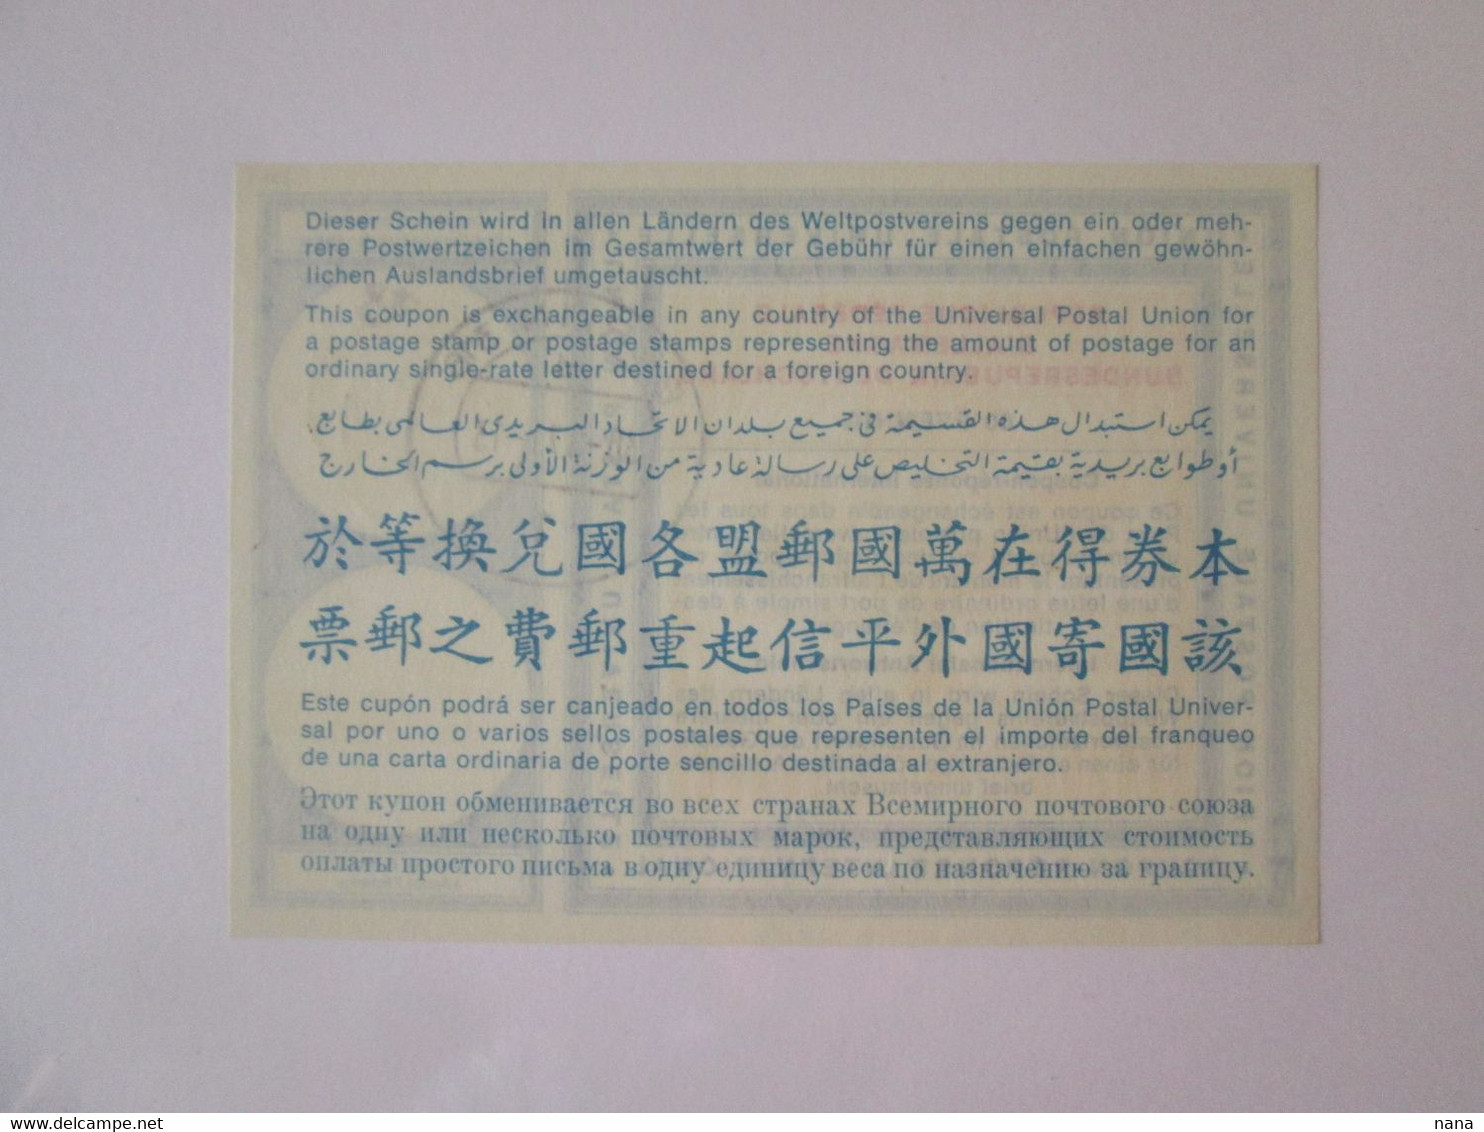 Dieser Schein wird in allen Ländern des Weltpostvereins gegen ein oder meh-
rere Postwertzeichen im Gesamtwert der Gebühr für einen einfachen gewöhn-
lichen Auslandsbrief umgetauscht.
This coupon is exchangeable in any country of the Universal Postal Union for
a postage stamp or postage stamps representing the amount of postage for an
ordinary single-rate letter destined for a foreign country.
يمكن استبدال هذه القسيمة فى جميع بلدان الاتحاد البريدى العالمى بطابع
أو طوابع بريدية بقيمة التخليص على رسالة عادية من الوزنة الأولى برسم الخارج
本券得在萬國郵盟各國兌換等於
該國寄國外平信起重郵費之郵票
Este cupón podrá ser canjeado en todos los Países de la Unión Postal Univer-
sal por uno o varios sellos postales que representen el importe del franqueo
de una carta ordinaria de porte sencillo destinada al extranjero.
Этот купон обменивается во всех странах Всемирного почтового союза
на одну или несколько почтовых марок, представляющих стоимость
оплаты простого письма в одну единицу веса по назначению за границу.
www.delcampe.net
nana